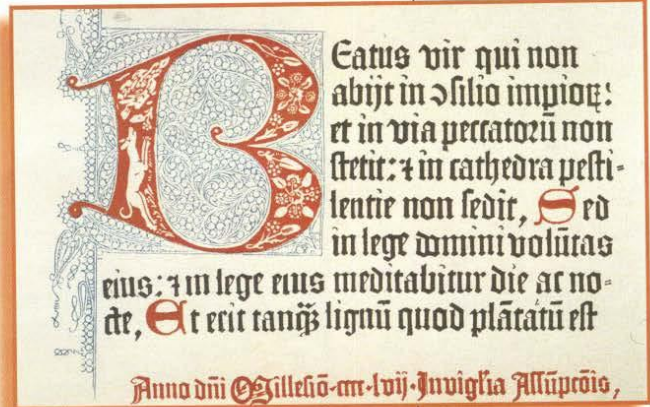 Beatus vir qui non
abijt in ↄsilio impioꝝ:
et in via peccatorū non
stetit: ⁊ in cathedra pesti-
lentie non sedit, Sed
in lege domini volūtas
eius: ⁊ in lege eius meditabitur die ac no-
cte, Et erit tanqꝫ lignū quod plātatū est
Anno dñi Millesiō·cccc·lvij·Invigl'ia Assūpcōis,